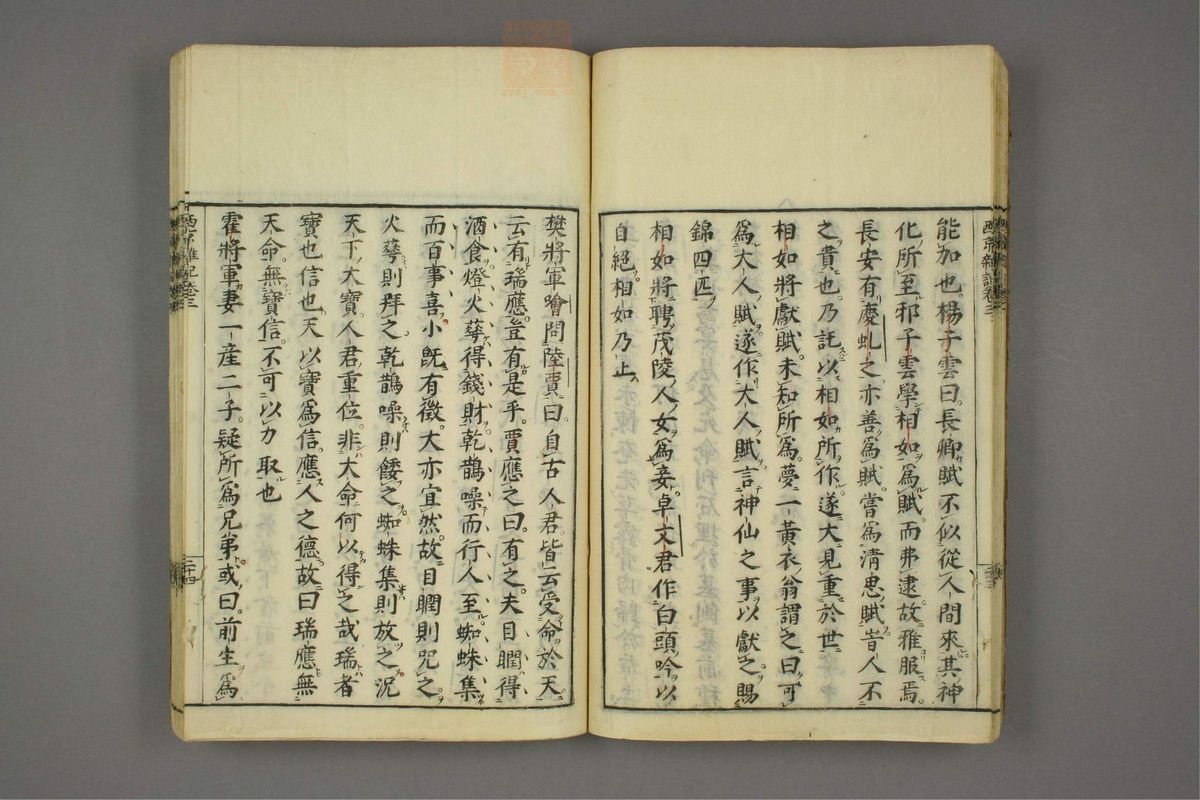 能加也楊子雲曰長卿賦不似從人間來其神
化所至邪子雲學相如爲賦而弗逮故雅服焉
長安有慶虬之亦善爲賦嘗爲清思賦旹人不
之貴也乃託以相如所作遂大見重於世
相如將獻賦未知所爲夢一黃衣翁謂之曰可
爲大人賦遂作大人賦言神仙之事以獻之賜
錦四匹
相如將聘茂陵人女爲妾卓文君作白頭吟以
自絕相如乃止
樊將軍噲問陸賈曰自古人君皆云受命於天
云有瑞應豈有是乎賈應之曰有之夫目瞤得
酒食燈火華得錢財乾鵲噪而行人至蜘蛛集
而百事喜小旣有徵大亦宜然故目瞤則咒之
火華則拜之乾鵲噪則餧之蜘蛛集則放之況
天下大寶人君重位非天命何以得之哉瑞者
寶也信也天以寶爲信應人之德故曰瑞應無
天命無寶信不可以力取也
霍將軍妻一產二子疑所爲兄弟或曰前生爲